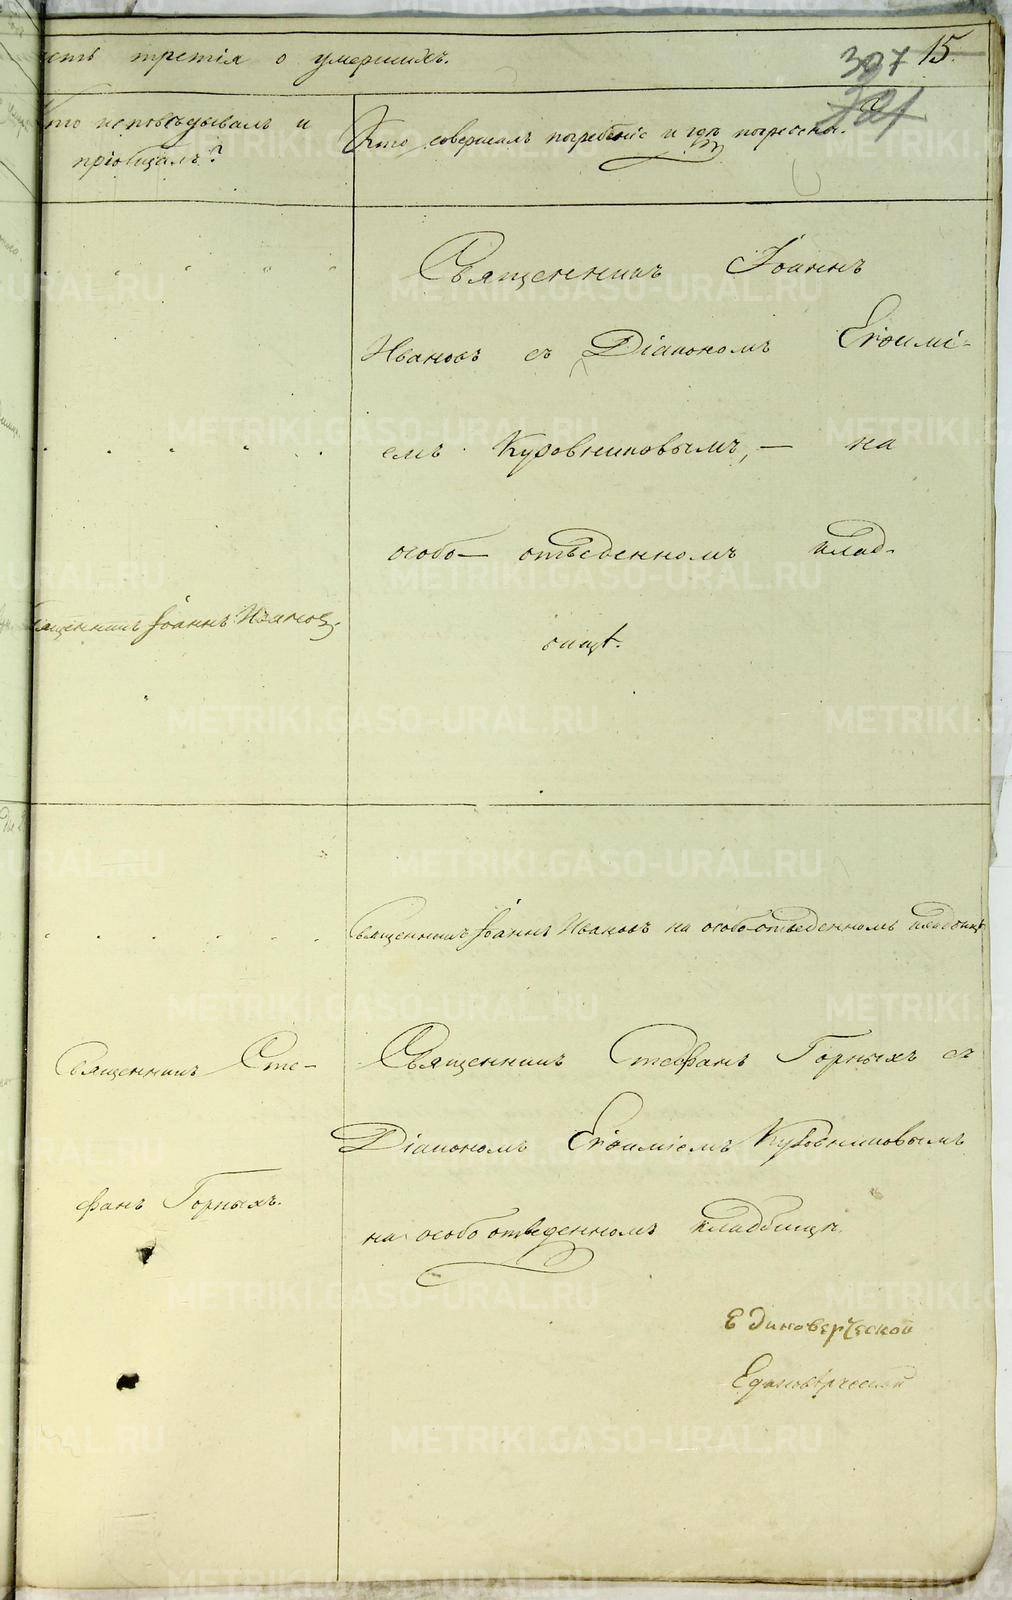 часть третія о умершихъ.
307
15.
321
Кто исповѣдывалъ и
пріобщалъ?
Кто совершалъ погребеніе и гдѣ погребены.
Священникъ Іоаннъ
Ивановъ съ Діакономъ Евѳимі-
емъ Куровниковымъ, — на
особо — отведенномъ клад-
бищѣ.
Священникъ Іоаннъ Ивановъ.
Священникъ Іоаннъ Ивановъ на особо-отведенномъ кладбищѣ
Священникъ Сте-
фанъ Горныхъ.
Священникъ Стефанъ Горныхъ съ
Діакономъ Евѳиміемъ Куровниковымъ
на особо отведенномъ кладбищѣ.
Единоверческой
Единоверческой
METRIKI.GASO-URAL.RU